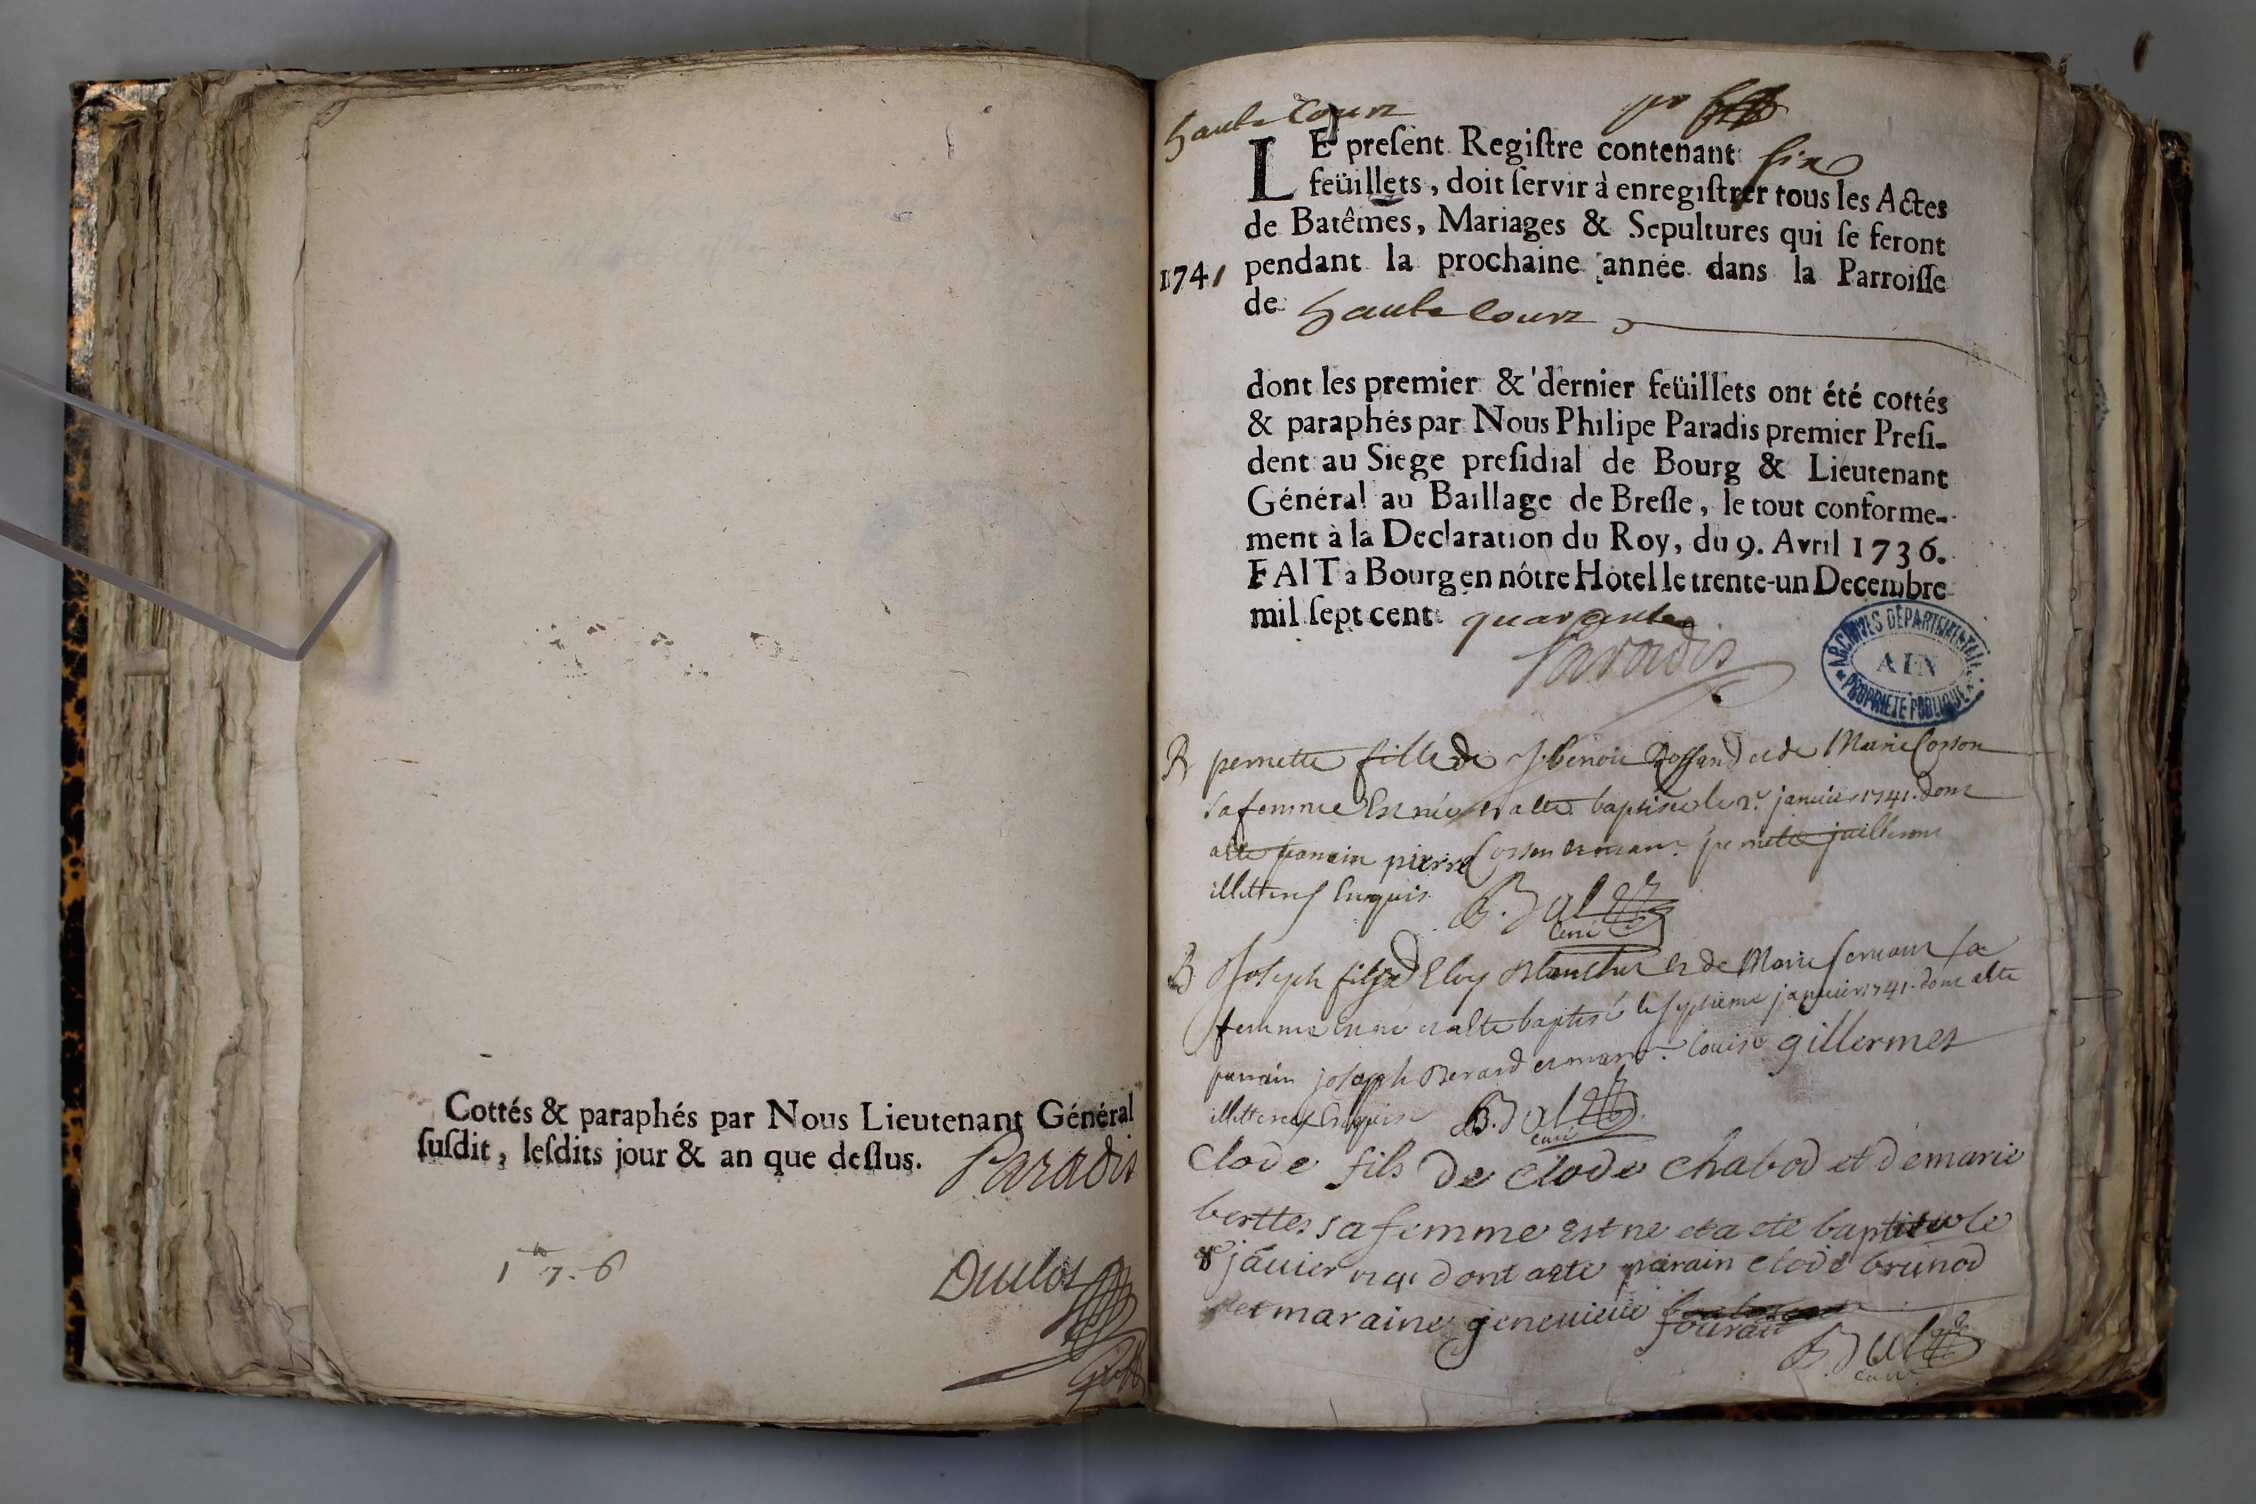 Cottés & paraphés par Nous Lieutenant Général
suſdit, leſdits jour & an que deſſus. Paradis
Duclos
haute Courz
LE preſent Regiſtre contenant six
feüillets, doit ſervir à enregiſtrer tous les Actes
de Batêmes, Mariages & Sepultures qui ſe feront
1741 pendant la prochaine année dans la Parroiſſe
de haute Courz
dont les premier & dernier feüillets ont été cottés
& paraphés par Nous Philipe Paradis premier Preſi-
dent au Siege preſidial de Bourg & Lieutenant
Général au Baillage de Breſſe, le tout conforme-
ment à la Declaration du Roy, du 9. Avril 1736.
FAIT à Bourg en nôtre Hôtel le trente-un Decembre
mil ſept cent quarante
Paradis
ARCHIVES DÉPARTEMENTALES
AIN
PROPRIÉTÉ PUBLIQUE
B pernette fille de J. benoit et de Marie Cosson
sa femme Est née et a eté baptisée le 2. janvier 1741. dont
a eté parrain pierre Cosson et maar. pernete
illitterés Enquis
curé
B Joseph fils d Eloy et de Marie servant sa
femme est né et a eté baptisé le septieme janvier 1741. dont a eté
parrain joseph Berard et marr. louise gillermet
illitterés Enquis
curé
Clode fils de Clode Chabod et de marie
berttet sa femme est ne et a ete baptise le
8e jauier 1741 dont a ete parain clode brunod
et maraine geneuieue
curé